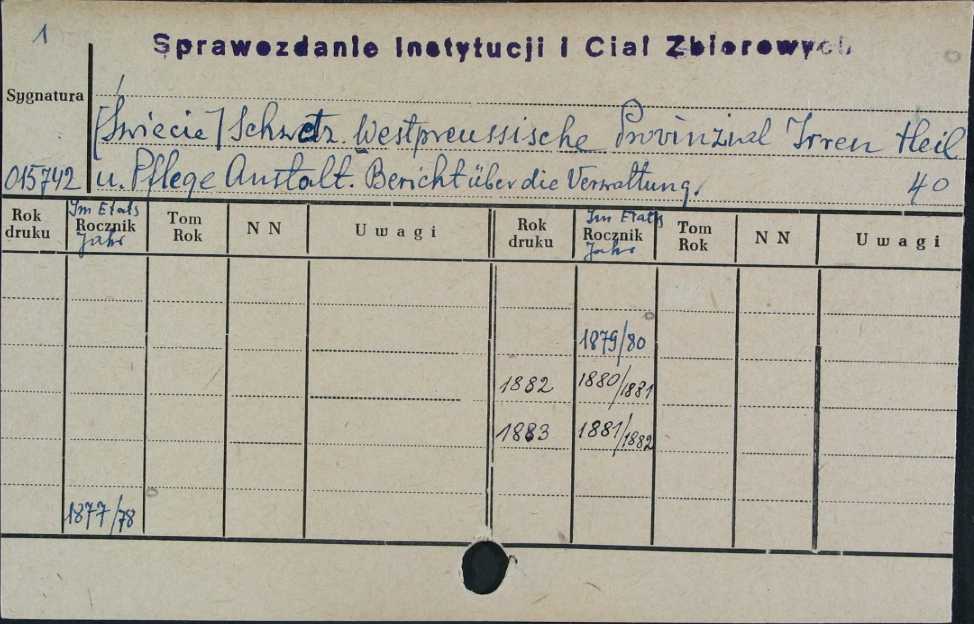 1
Sprawozdanie Instytucji i Ciał Zbiorowych
Sygnatura
[Świecie] Schwetz. Westpreussische Provinzial Irren Heil
015742 u. Pflege Anstalt. Bericht über die Verwaltung. 40
Rok druku Im Etats Rocznik Jahr Tom Rok N N Uwagi Rok druku Im Etats Rocznik Jahr Tom Rok N N Uwagi
1879/80
1882 1880/1881
1883 1881/1882
1877/78